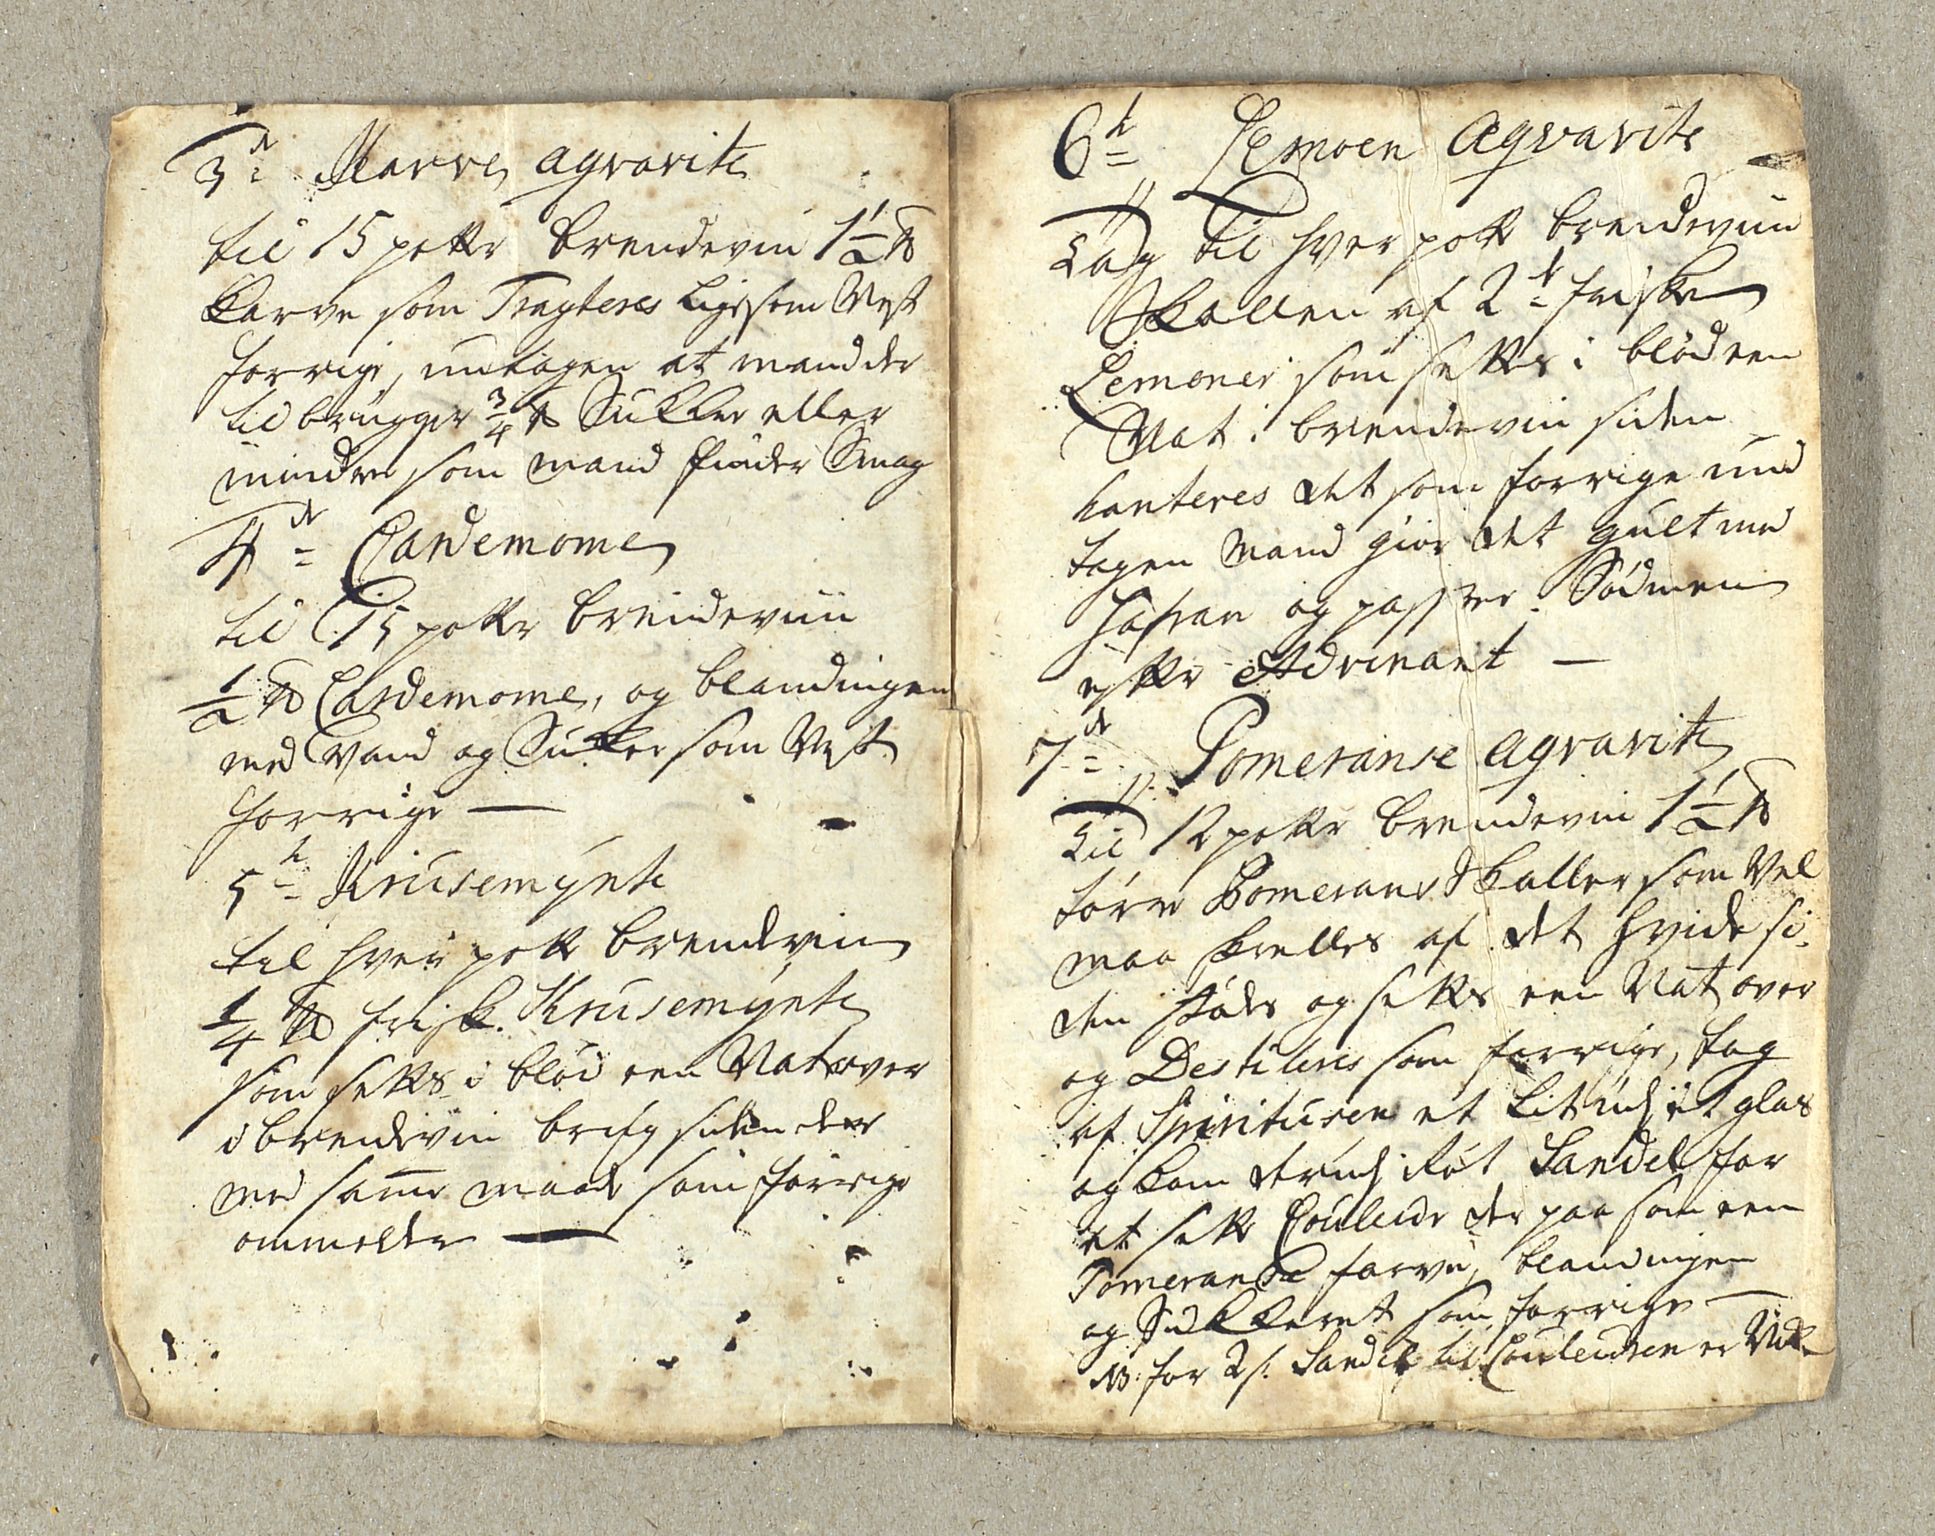 3de Karve agvavite
til 15 potter brendevin 1½ ℔
Karve som Tragteres Ligesom Nest
forrige, undtagen at mand der
til brugger ¾ ℔ Sukker eller
mindre som mand finder Smag
4de Cardemome
til 15 potter brendeviin
½ ℔ Cardemome, og blandingen
med Vand og Sukker som Nest
forrige —
5te Krusemynte
til hver pott brendeviin
¼ ℔ frisk Krusemynte
som settes i blød een Nat over
i brendeviin siden der
med samme maade som forrige
ommelte —
6te Lemoen Aqvavite
Tag til hver pott brendeviin
Skallen af 2de friske
Lemoner som settes i blød een
Nat i brendeviin siden
hanteres det som forrige und
tagen mand giør det guelt med
Safran og passer Sødmen
etter Advenant —
7de Pomeranse agvavite
Til 12 potter brendevin 1½ ℔
tørre Pomerans Skaller som Vel
maa skrelles af det hvide si-
den stødes og settes een Nat over
og Destileres som forrige, tag
af Spiritusen et Lit ud i et glas
og kom derud i Røt Sandel for
at sette Couleur der paa som een
Pomeranse farve, blandingen
og Sukkeret som forrige —
NB: for 2 s. Sandel til Couleuren er Nok